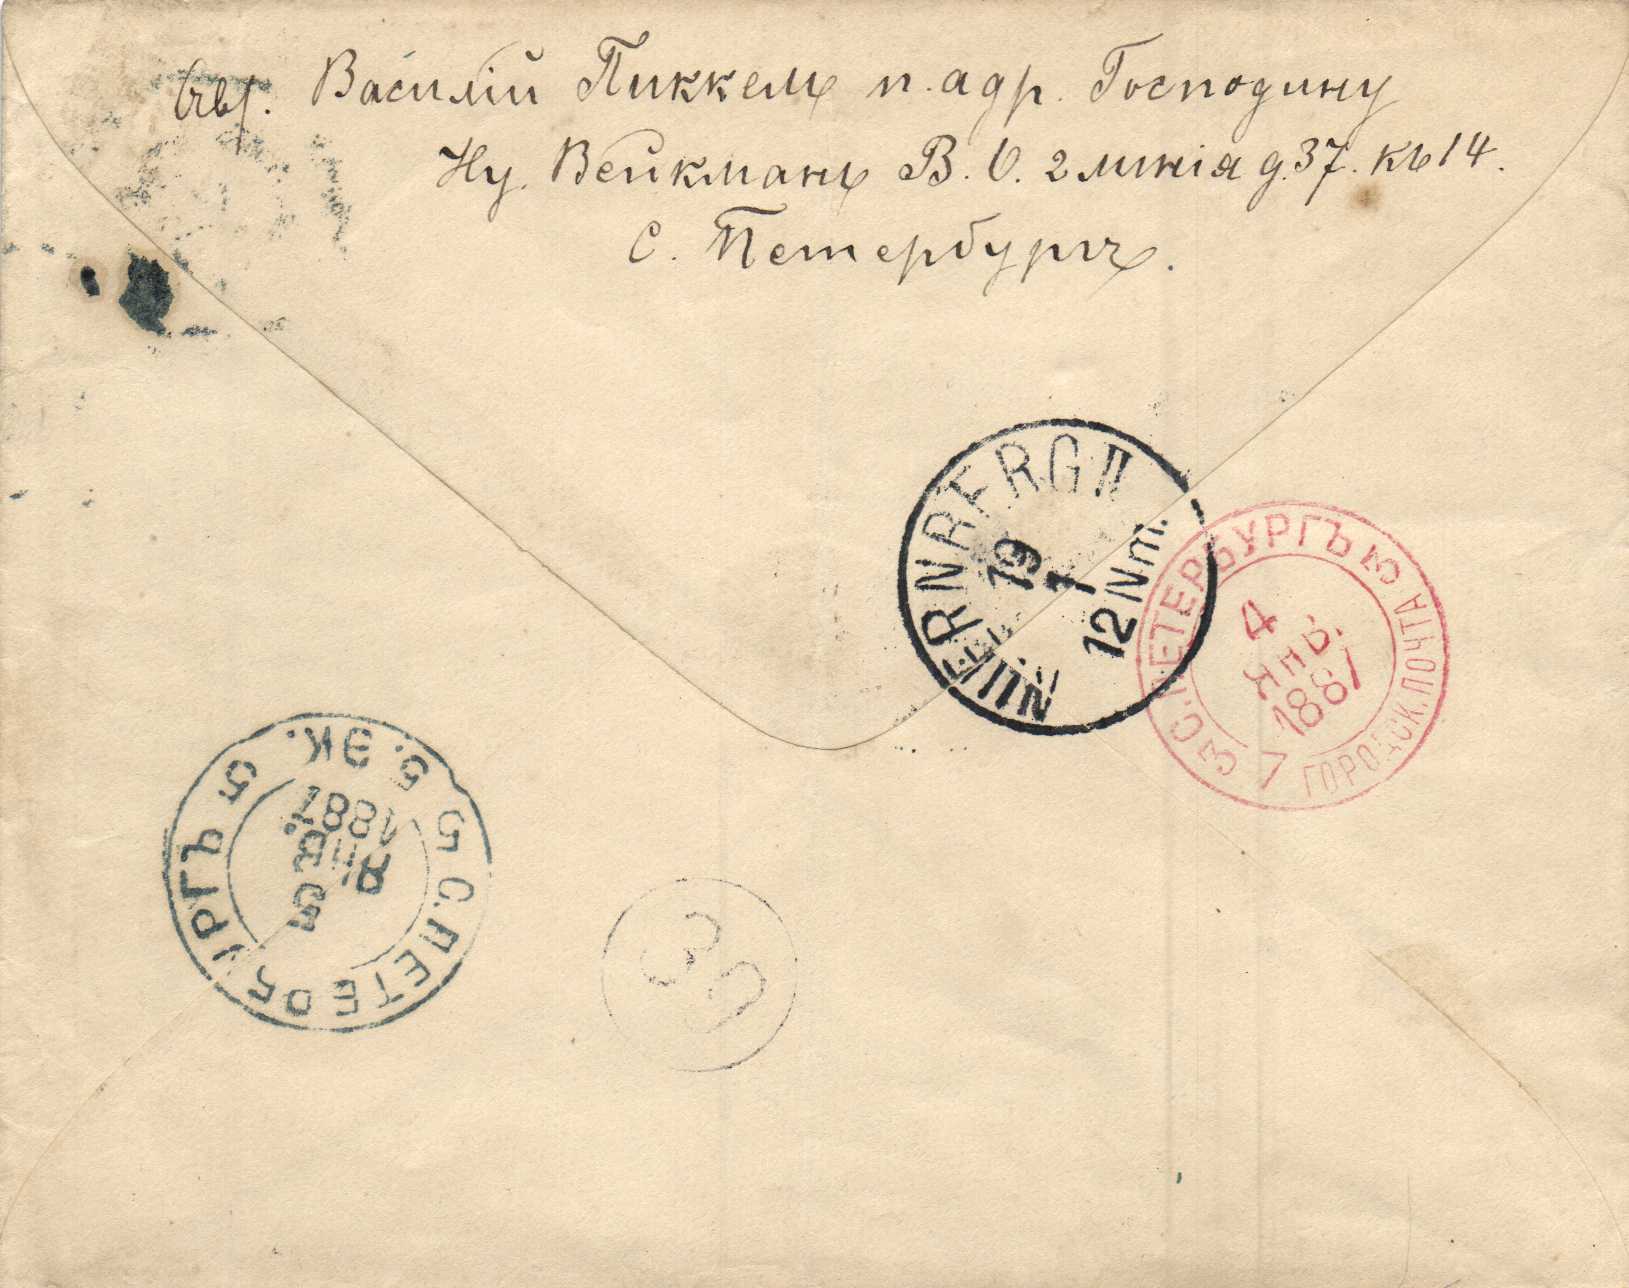 Василій Пиккель п. адр. Господину
Ну. Вейкманъ В. О. 2 линія д. 37. кв 14.
С. Петербургъ.
NUERNBERG II
19
1
12 Nm.
3 С.ПЕТЕРБУРГЪ 3
ГОРОДСК. ПОЧТА
4
ЯНВ.
1887
5 С.ПЕТЕРБУРГЪ 5
5. ЭК.
5
ЯНВ.
1887